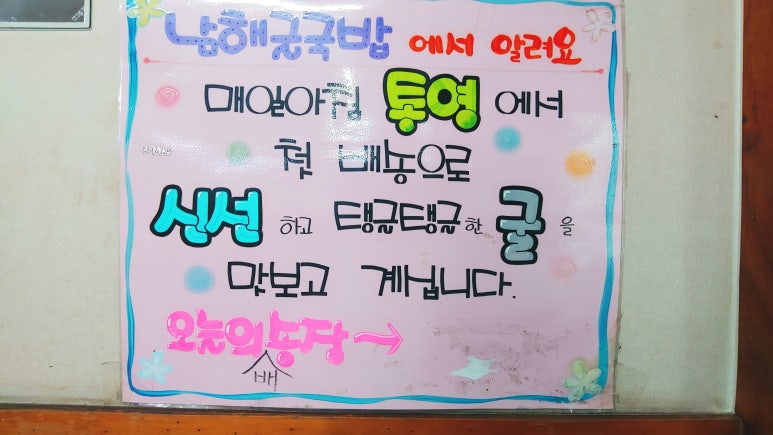 남해굴국밥 에서 알려요
매일아침 통영 에서
첫 배농으로
신선 하고 탱글탱글 한 굴 을
맛보고 계십니다.
오늘의 농장 →
배